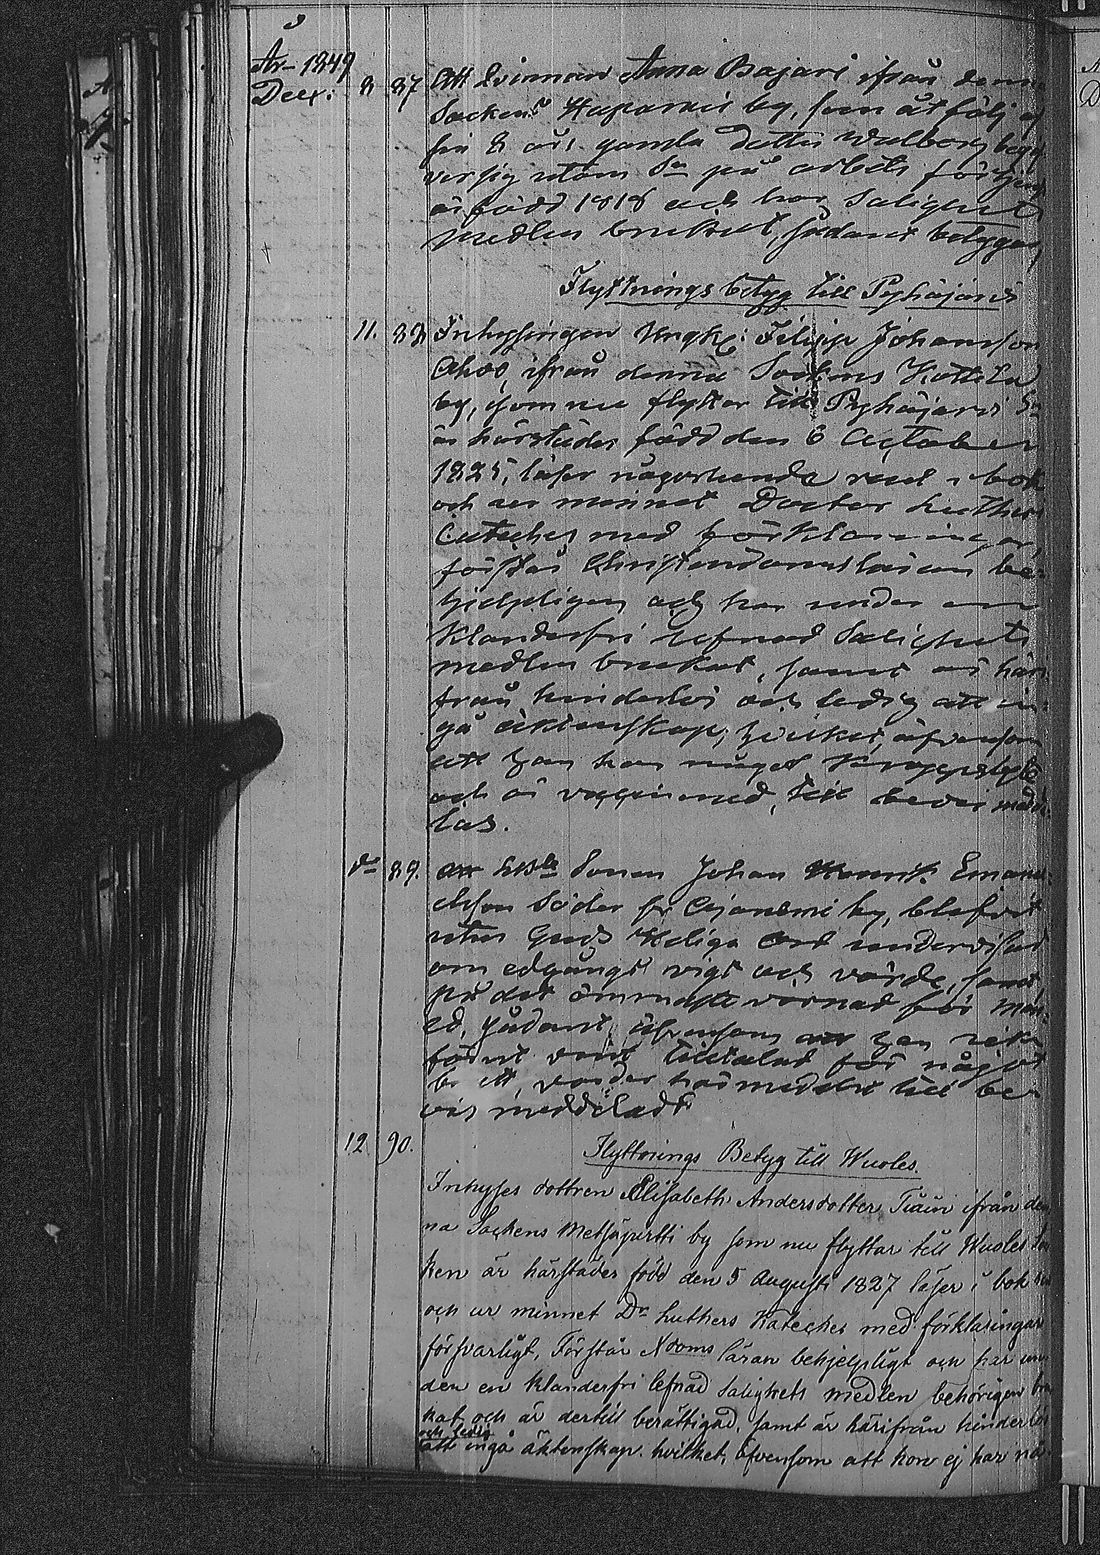 År 1849
Decr: 8 87 Att Qvinnan Anna Bajari ifrån denna
Sockens Haparais by, som åtföljd af
sin 8 års gamla dotter Walborg begif
ver sig utom Sn på arbets förtjenst
är född 1818 och har Salighets
medlen brukat, sådant betygas,
Flyttnings betyg till Pyhäjärvi
11. 88 Inhysingen Ungk: Filip Johansson
Ahoo, ifrån denna Sockens Kottila
by, som nu flyttar till Pyhäjärvi Sn
är härstädes född den 6 October
1825, läser någorlunda rent i bok
och ur minnet Doctor Luthers
Cateches med förklaringar,
förstår Christendomsläran be-
hjelpligen och har under en
klanderfri lefnad Salighets
medlen brukat, samt är här
från hinderlös och ledig att in-
gå äktenskap; hvilket, äfvensom
att han har något kroppslyte
och är vaccinerad, till bevis medde-
las.
do 89. att Sonen Johan Henrik Emanu-
elsson Söder fr by, blifvit
utur Guds Heliga Ord undervisad
om edgångs vigt och värde, samt
på det ömmaste varnad för men-
ed, sådant, äfvensom att han icke
förut varit tilltalad för något
brott, varder härmedelst till be-
vis meddeladt
12 90. Flyttnings Betyg till Wuoles
Inhyses dottren Elisabeth Andersdotter Tiain ifrån den
na Sockens Metsäpirtti by som nu flyttar till Wuoles Soc
ken är härstädes född den 5 Augusti 1827 läser i bok
och ur minnet Dr Luthers Kateches med förklaringar
försvarligt, Förstår Xdoms läran behjelpligt och har un
der en klanderfri lefnad Salighets medlen behörigen bru
kat, och är dertill berättigad, samt är härifrån hinderlös
och ledig
att ingå äktenskap. hvilket, äfvensom att hon ej har nå-